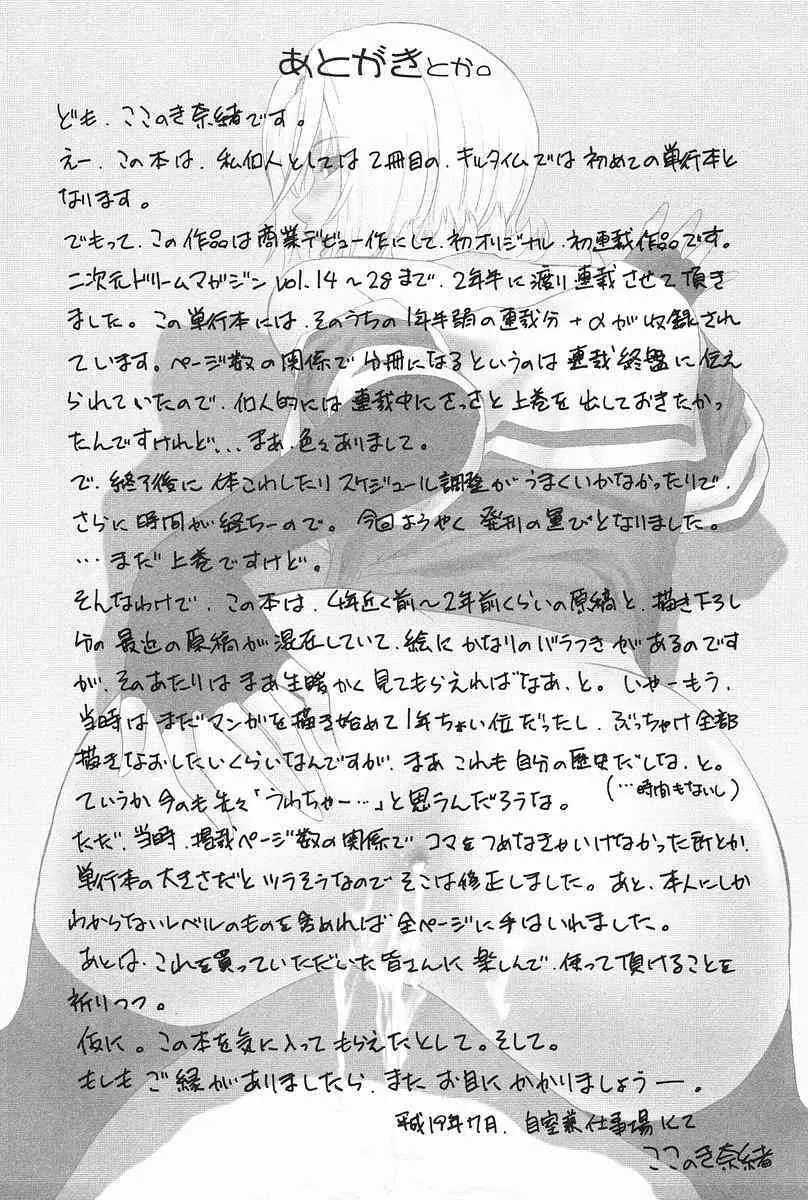 あとがきとか。
ども、ここのき奈緒です。
えー、この本は、私個人としては2冊目の、キルタイムでは初めての単行本と
なります。
でもって、この作品は商業デビュー作にして、初オリジナル、初連載作品です。
二次元ドリームマガジンvol.14〜28まで、2年半に渡り連載させて頂き
ました。この単行本には、そのうちの1年半弱の連載分+αが収録され
ています。ページ数の関係で分冊になるというのは連載終盤に伝え
られていたので、個人的には連載中にさっさと上巻を出しておきたかっ
たんですけれど...まあ、色々ありまして。
で、終了後に体こわしたりスケジュール調整がうまくいかなかったりで、
さらに時間が経ちーので。今回ようやく発刊の運びとなりました。
…まだ上巻ですけど。
そんなわけで、この本は、4年近く前〜2年前くらいの原稿と、描き下ろし
分の最近の原稿が混在していて、絵にかなりのバラつきがあるのです
が、そのあたりはまあ生暖かく見てもらえればなあ、と。いやーもう、
当時はまだマンガを描き始めて1年ちょい位だったし、ぶっちゃけ全部
描きなおしたいくらいなんですが、まあこれも自分の歴史だしな、と。
(…時間もないし)
ていうか今のも先々「うわちゃー…」と思うんだろうな。
ただ、当時、掲載ページ数の関係でコマをつめなきゃいけなかった所とか、
単行本の大きさだとツラそうなのでそこは修正しました。あと、本人にしか
わからないレベルのものを含めれば全ページに手はいれました。
あとは、これを買っていただいた皆さんに楽しんで、使って頂けることを
祈りつつ。
仮に。この本を気に入ってもらえたとして。そして。
もしもご縁がありましたら、またお目にかかりましょうー。
平成19年7月、自室兼仕事場にて
ここのき奈緒